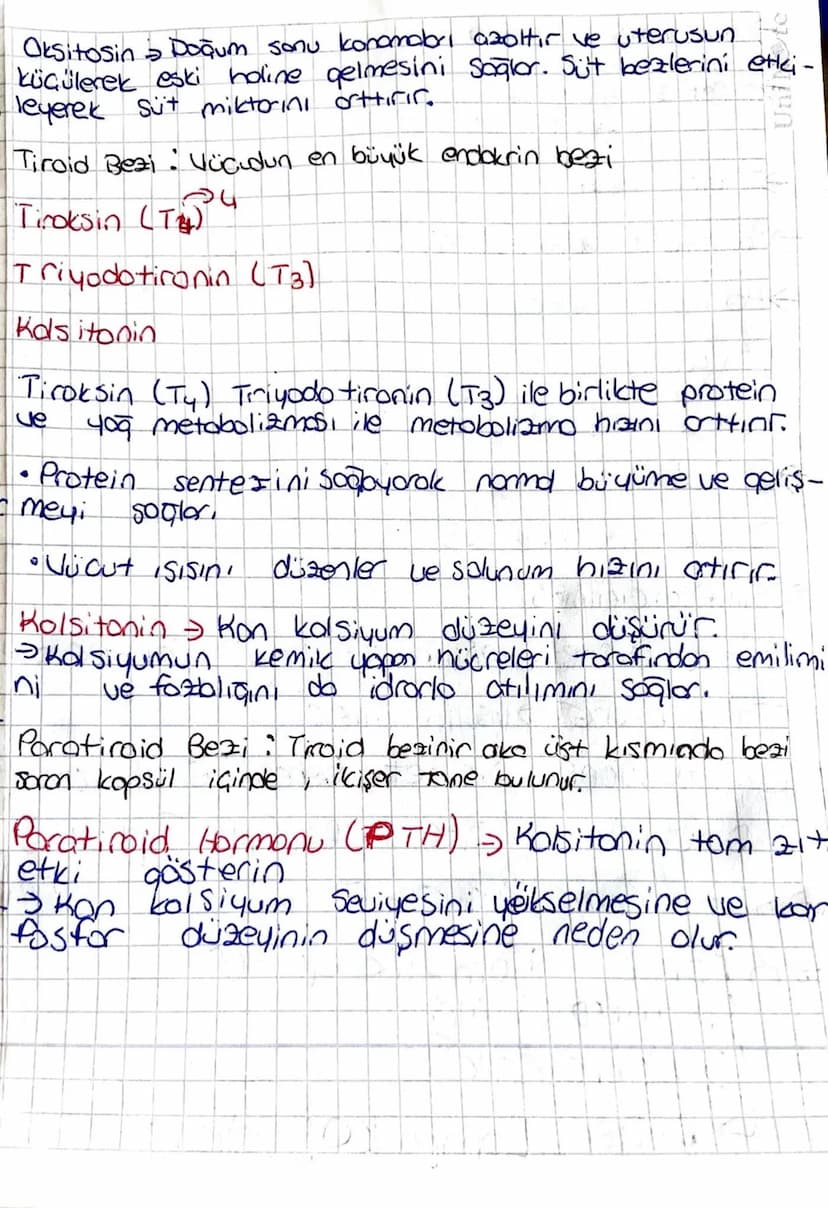 Oksitosin → Doğum sonu kanamaları azaltır ve uterusun
küçülerek eski haline gelmesini sağlar. Süt bezlerini etki-
leyerek süt miktarını arttırır.
Tiroid Bezi : Vücudun en büyük endokrin bezi
Tiroksin (T4) → 4
Triyodotironin (T3)
Kalsitonin
Tiroksin (T4) Triyodotironin (T3) ile birlikte protein
ve yağ metabolizması ile metabolizma hızını arttırır.
• Protein sentezini sağlayarak normal büyüme ve geliş-
meyi sağlar.
• Vücut ısısını düzenler ve solunum hızını artırır.
Kalsitonin → Kan kalsiyum düzeyini düşürür.
→ Kalsiyumun kemik yapan hücreleri tarafından emilimi
ni ve fazlalığını da idrarla atılımını sağlar.
Paratiroid Bezi : Tiroid bezinin üst kısmında bezi
saran kapsül içinde, ikişer tane bulunur.
Paratiroid Hormonu (PTH) → Kalsitonin tam zıt
etki gösterin
→ Kan kalsiyum seviyesini yükselmesine ve kan
fosfor düzeyinin düşmesine neden olur.